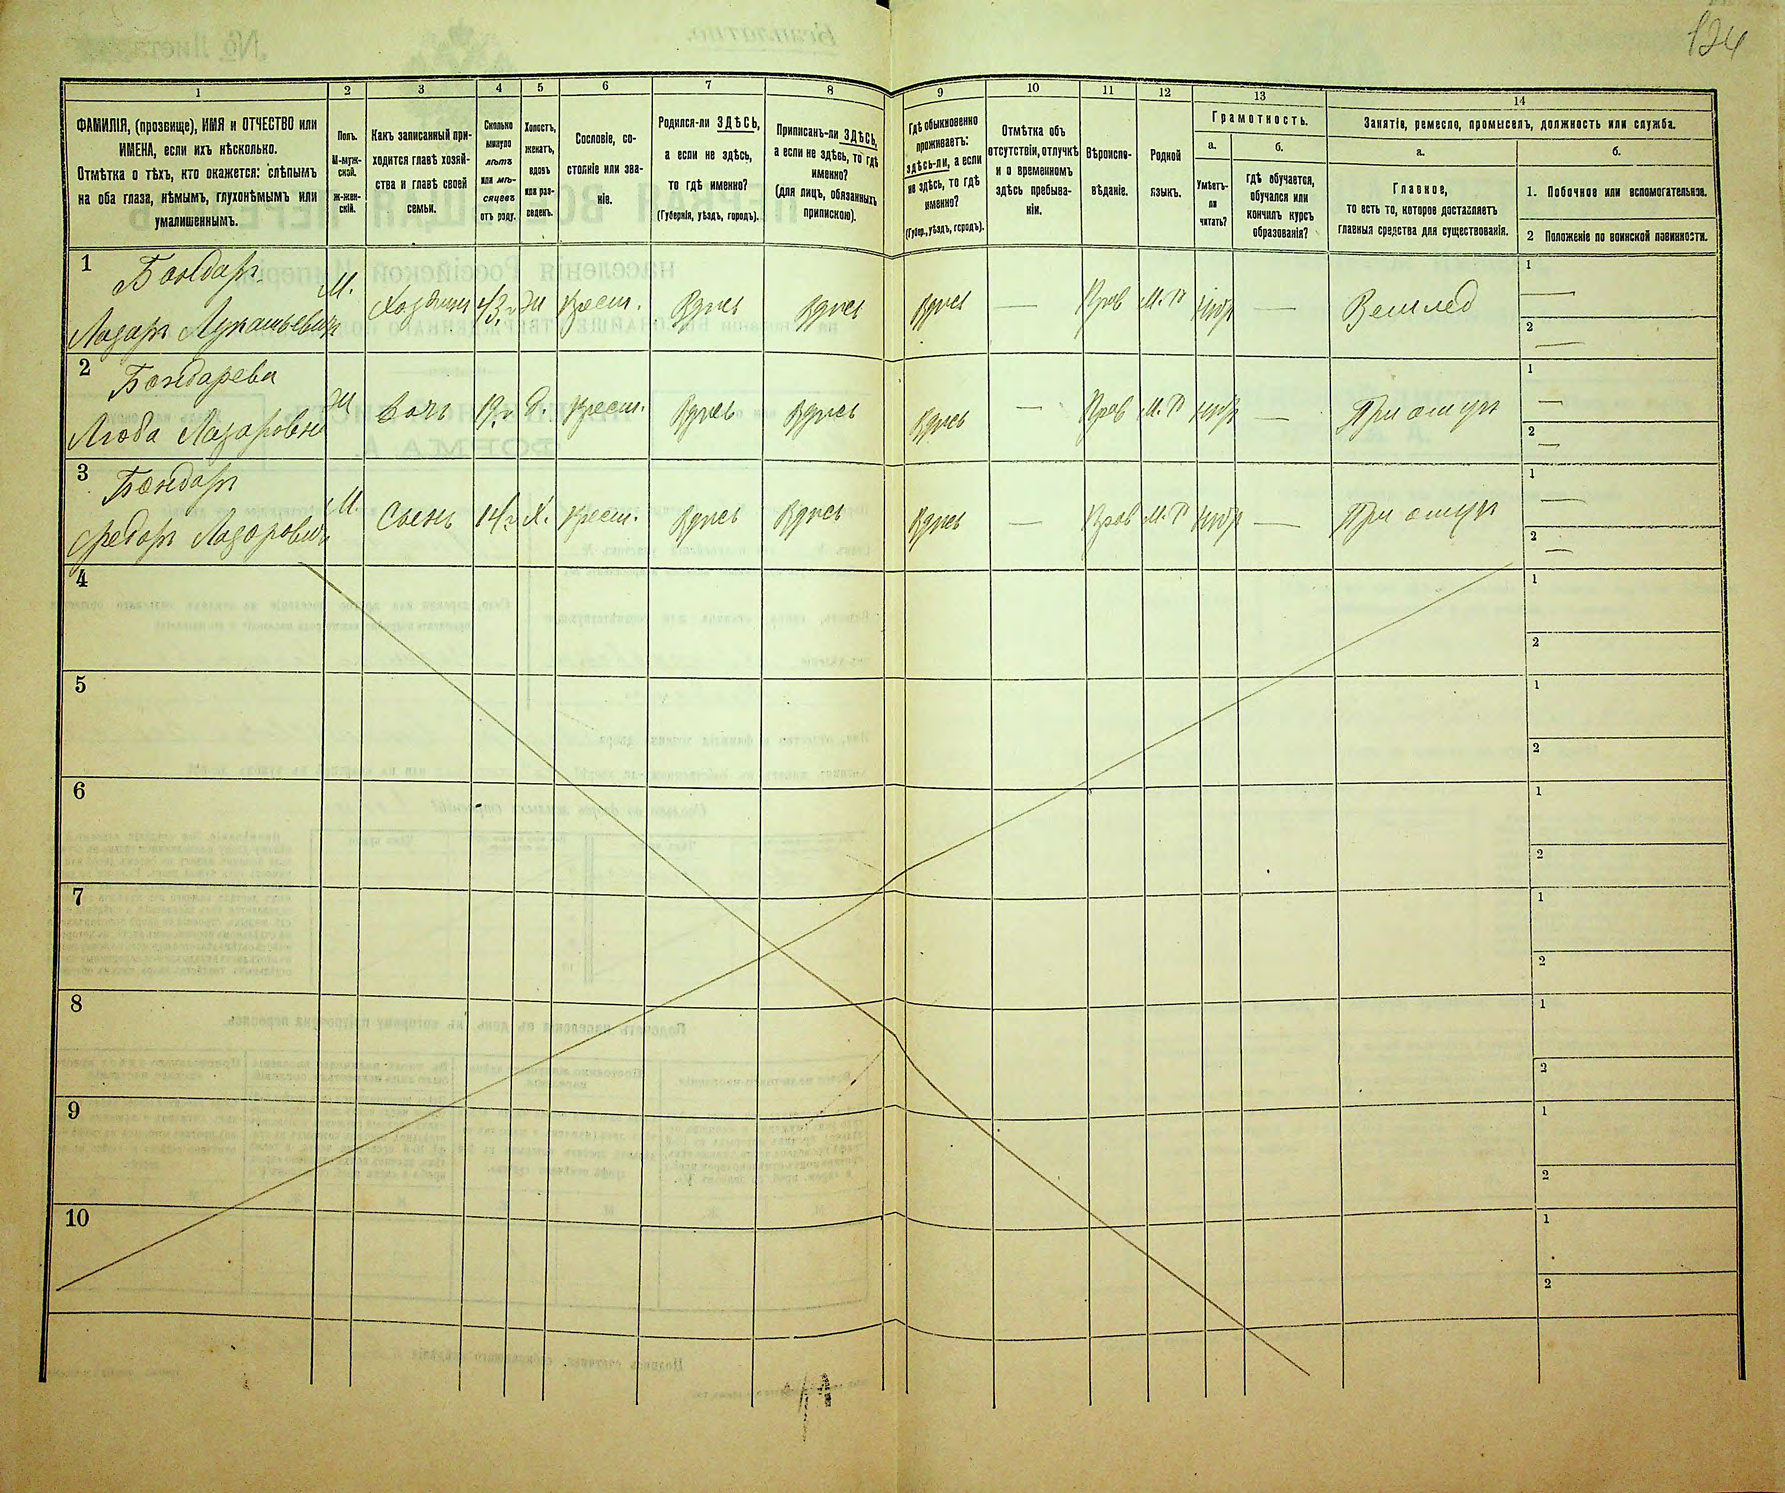 124
1 2 3 4 5 6 7 8 9 10 11 12 13 14
ФАМИЛІЯ, (прозвище), ИМЯ и ОТЧЕСТВО или
ИМЕНА, если ихъ нѣсколько.
Отмѣтка о тѣхъ, кто окажется: слѣпымъ
на оба глаза, нѣмымъ, глухонѣмымъ или
умалишеннымъ.
Полъ.
М-муж-
ской.
Ж-жен-
скій.
Какъ записанный при-
ходится главѣ хозяй-
ства и главѣ своей
семьи.
Сколько
минуло
лѣтъ
или мѣ-
сяцевъ
отъ роду.
Холостъ,
женатъ,
вдовъ
или раз-
веденъ.
Сословіе, со-
стояніе или зва-
ніе.
Родился-ли ЗДѢСЬ,
а если не здѣсь,
то гдѣ именно?
(Губернія, уѣздъ, городъ).
Приписанъ-ли ЗДѢСЬ,
а если не здѣсь, то гдѣ
именно?
(для лицъ, обязанныхъ
припискою).
Гдѣ обыкновенно
проживаетъ:
здѣсь-ли, а если
не здѣсь, то гдѣ
именно?
(Губер., уѣздъ, городъ).
Отмѣтка объ
отсутствіи, отлучкѣ
и о временномъ
здѣсь пребыва-
ніи.
Вѣроиспо-
вѣданіе.
Родной
языкъ.
Грамотность.
а.
Умѣетъ-
ли
читать?
б.
Гдѣ обучается,
обучался или
кончилъ курсъ
образованія?
Занятіе, ремесло, промыселъ, должность или служба.
а.
Главное,
то есть то, которое доставляетъ
главныя средства для существованія.
б.
1. Побочное или вспомогательное.
2 Положеніе по воинской повинности.
1 Бондарь
Лазарь Лукашевичъ М. Хозяинъ 43 г. Ж Крест. Здѣсь Здѣсь Здѣсь — Прав М.Р. — Землед 1 — 2 —
2 Бондарева
Люба Лазаровна Ж дочь д. Крест. Здѣсь Здѣсь Здѣсь — Прав М.Р. — При отцѣ 1 — 2 —
3 Бондарь
Федоръ Лазаровичъ М. Сынъ 14 г. Х. Крест. Здѣсь Здѣсь Здѣсь — Прав М.Р. — При отцѣ 1 — 2 —
4 1 2
5 1 2
6 1 2
7 1 2
8 1 2
9 1 2
10 1 2